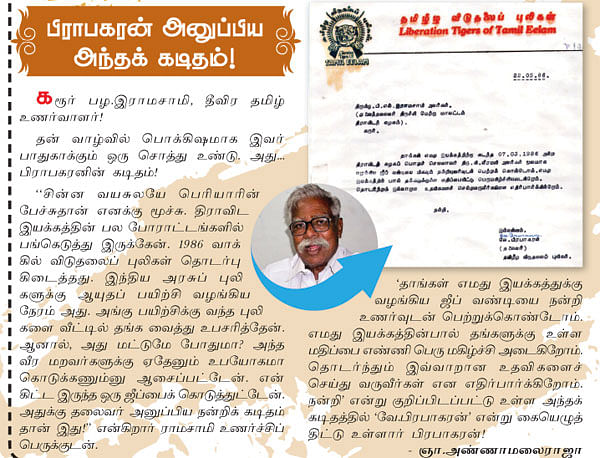 பிரபாகரன் அனுப்பிய
அந்தக் கடிதம்!
கரூர் பழ.இராமசாமி, தீவிர தமிழ்
உணர்வாளர்!
தன் வாழ்வில் பொக்கிஷமாக இவர்
பாதுகாக்கும் ஒரு சொத்து உண்டு. அது...
பிரபாகரனின் கடிதம்!
‘‘சின்ன வயசுலயே பெரியாரின்
பேச்சுதான் எனக்கு மூச்சு. திராவிட
இயக்கத்தின் பல போராட்டங்களில்
பங்கெடுத்து இருக்கேன். 1986 வாக்
கில் விடுதலைப் புலிகள் தொடர்பு
கிடைத்தது. இந்திய அரசுப் புலி
களுக்கு ஆயுதப் பயிற்சி வழங்கிய
நேரம் அது. அங்கு பயிற்சிக்கு வந்த புலி
களை வீட்டில் தங்க வைத்து உபசரித்தேன்.
ஆனால், அது மட்டுமே போதுமா? அந்த
வீர மறவர்களுக்கு ஏதேனும் உபயோகமா
கொடுக்கணும்னு ஆசைப்பட்டேன். என்
கிட்ட இருந்த ஒரு ஜீப்பைக் கொடுத்துட்டேன்.
அதுக்கு தலைவர் அனுப்பிய நன்றிக் கடிதம்
தான் இது!’’ என்கிறார் ராமசாமி உணர்ச்சிப்
பெருக்குடன்.
தமிழீழ விடுதலைப் புலிகள்
Liberation Tigers of Tamil Eelam
TAMIL EELAM
20.05.86.
திராவிடர் கழகம்)
கரூர்.
தாங்கள் எமது இயக்கத்திற்கு கடந்த 07.03.1986 அன்று
நன்றி
இங்ஙனம்,
வே.பிரபாகரன்
(தலைவர்)
தமிழீழ விடுதலைப் புலிகள்
‘தாங்கள் எமது இயக்கத்துக்கு
வழங்கிய ஜீப் வண்டியை நன்றி
உணர்வுடன் பெற்றுக்கொண்டோம்.
எமது இயக்கத்தின்பால் தங்களுக்கு உள்ள
மதிப்பை எண்ணி பெரு மகிழ்ச்சி அடைகிறோம்.
தொடர்ந்தும் இவ்வாறான உதவிகளைச்
செய்து வருவீர்கள் என எதிர்பார்க்கிறோம்.
நன்றி’ என்று குறிப்பிடப்பட்டு உள்ள அந்தக்
கடிதத்தில் ‘வே.பிரபாகரன்’ என்று கையெழுத்
திட்டு உள்ளார் பிரபாகரன்!
- ஞா.அண்ணாமலைராஜா